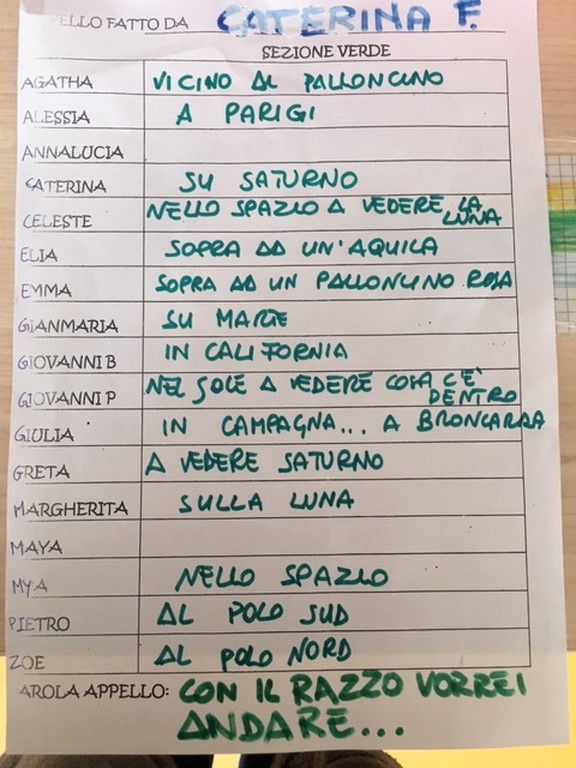 PELLO FATTO DA CATERINA F.
SEZIONE VERDE
AGATHA VICINO AL PALLONCINO
ALESSIA A PARIGI
ANNALUCIA
CATERINA SU SATURNO
CELESTE NELLO SPAZIO A VEDERE LA
LUNA
ELIA SOPRA AD UN'AQUILA
EMMA SOPRA AD UN PALLONCINO ROSA
GIANMARIA SU MARTE
GIOVANNI B IN CALIFORNIA
GIOVANNI P NEL SOLE A VEDERE COSA C'È
DENTRO
GIULIA IN CAMPAGNA... A
GRETA A VEDERE SATURNO
MARGHERITA SULLA LUNA
MAYA
MYA NELLO SPAZIO
PIETRO AL POLO SUD
ZOE AL POLO NORD
AROLA APPELLO: CON IL RAZZO VORREI
ANDARE...